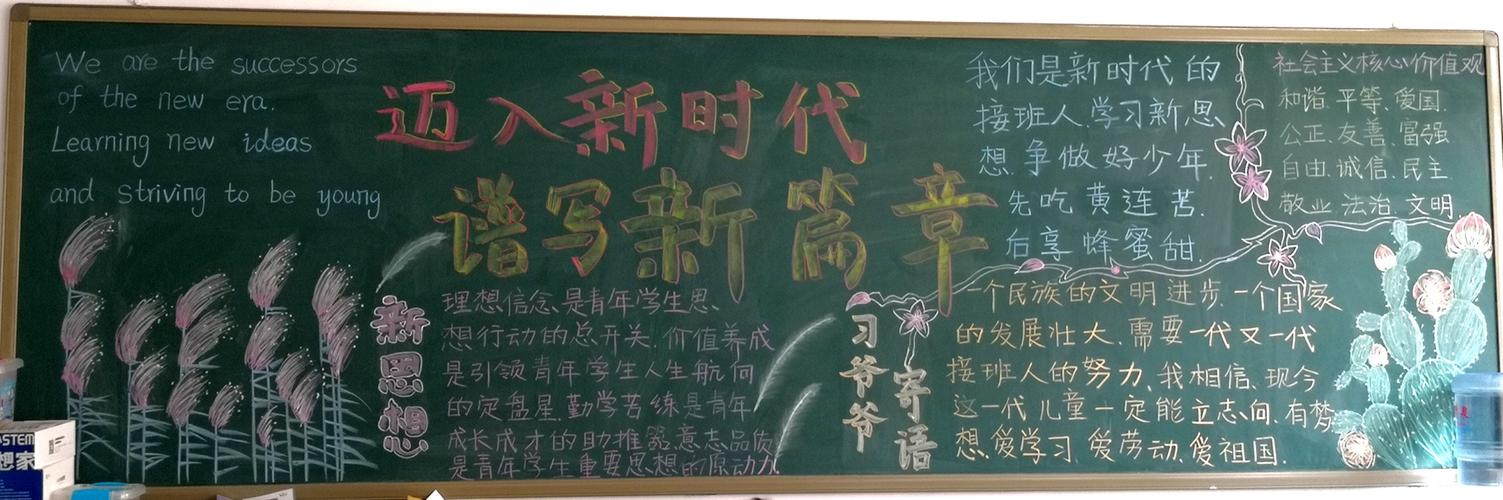 We are the successors
of the new era.
Learning new ideas
and striving to be young
迈入新时代
谱写新篇章
我们是新时代的
接班人.学习新思
想.争做好少年.
先吃黄连苦.
后享蜂蜜甜.
社会主义核心价值观
和谐.平等.爱国.
公正.友善.富强
自由.诚信.民主.
敬业 法治.文明
新思想
理想信念.是青年学生思
想行动的总开关.价值养成
是引领青年学生人生航向
的定盘星.勤学苦练是青年
成长成才的助推器.意志品质
是青年学生重要思想的原动力
习爷爷
寄语
一个民族的文明进步.一个国家
的发展壮大.需要一代又一代
接班人的努力、我相信、现今
这一代儿童一定能立志向.有梦
想.爱学习.爱劳动.爱祖国.
STEM
想家